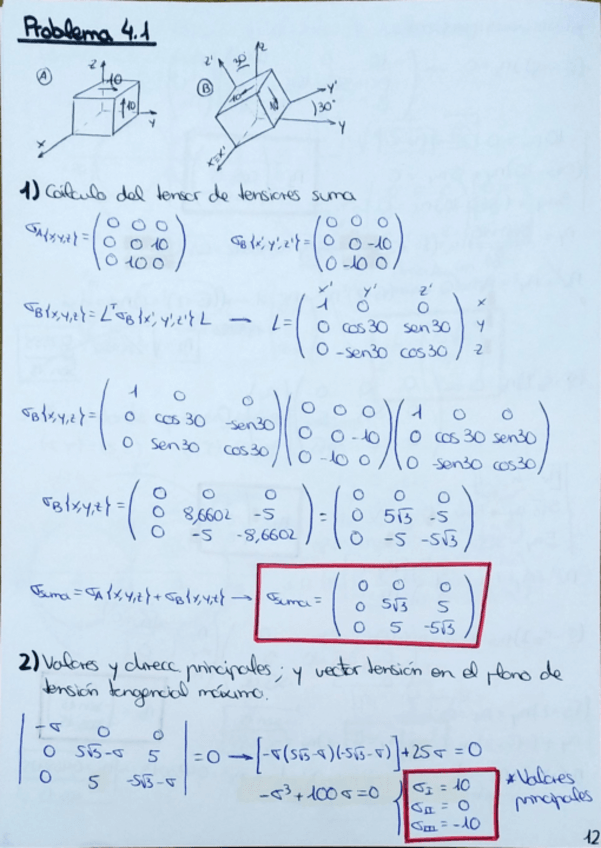 Problema 4.1
A z 10 10 y x
B z' 30° z 10 10 y' 30° y x≡x'
1) Cálculo del tensor de tensiones suma
σA{x,y,z} = (0 0 0; 0 0 10; 0 10 0) σB{x',y',z'} = (0 0 0; 0 0 -10; 0 -10 0)
σB{x,y,z} = Lᵀ σB{x',y',z'} L — L = x' y' z' (1 0 0; 0 cos30 sen30; 0 -sen30 cos30) x y z
σB{x,y,z} = (1 0 0; 0 cos30 -sen30; 0 sen30 cos30) (0 0 0; 0 0 -10; 0 -10 0) (1 0 0; 0 cos30 sen30; 0 -sen30 cos30)
σB{x,y,z} = (0 0 0; 0 8,6602 -5; 0 -5 -8,6602) = (0 0 0; 0 5√3 -5; 0 -5 -5√3)
σsuma = σA{x,y,z} + σB{x,y,z} → σsuma = (0 0 0; 0 5√3 5; 0 5 -5√3)
2) Valores y direcc. principales; y vector tensión en el plano de
tensión tangencial máximo.
|-σ 0 0; 0 5√3-σ 5; 0 5 -5√3-σ| = 0 → [-σ(5√3-σ)(-5√3-σ)] + 25σ = 0
-σ³ + 100σ = 0 { σI = 10
σII = 0
σIII = -10
* Valores
principales
12